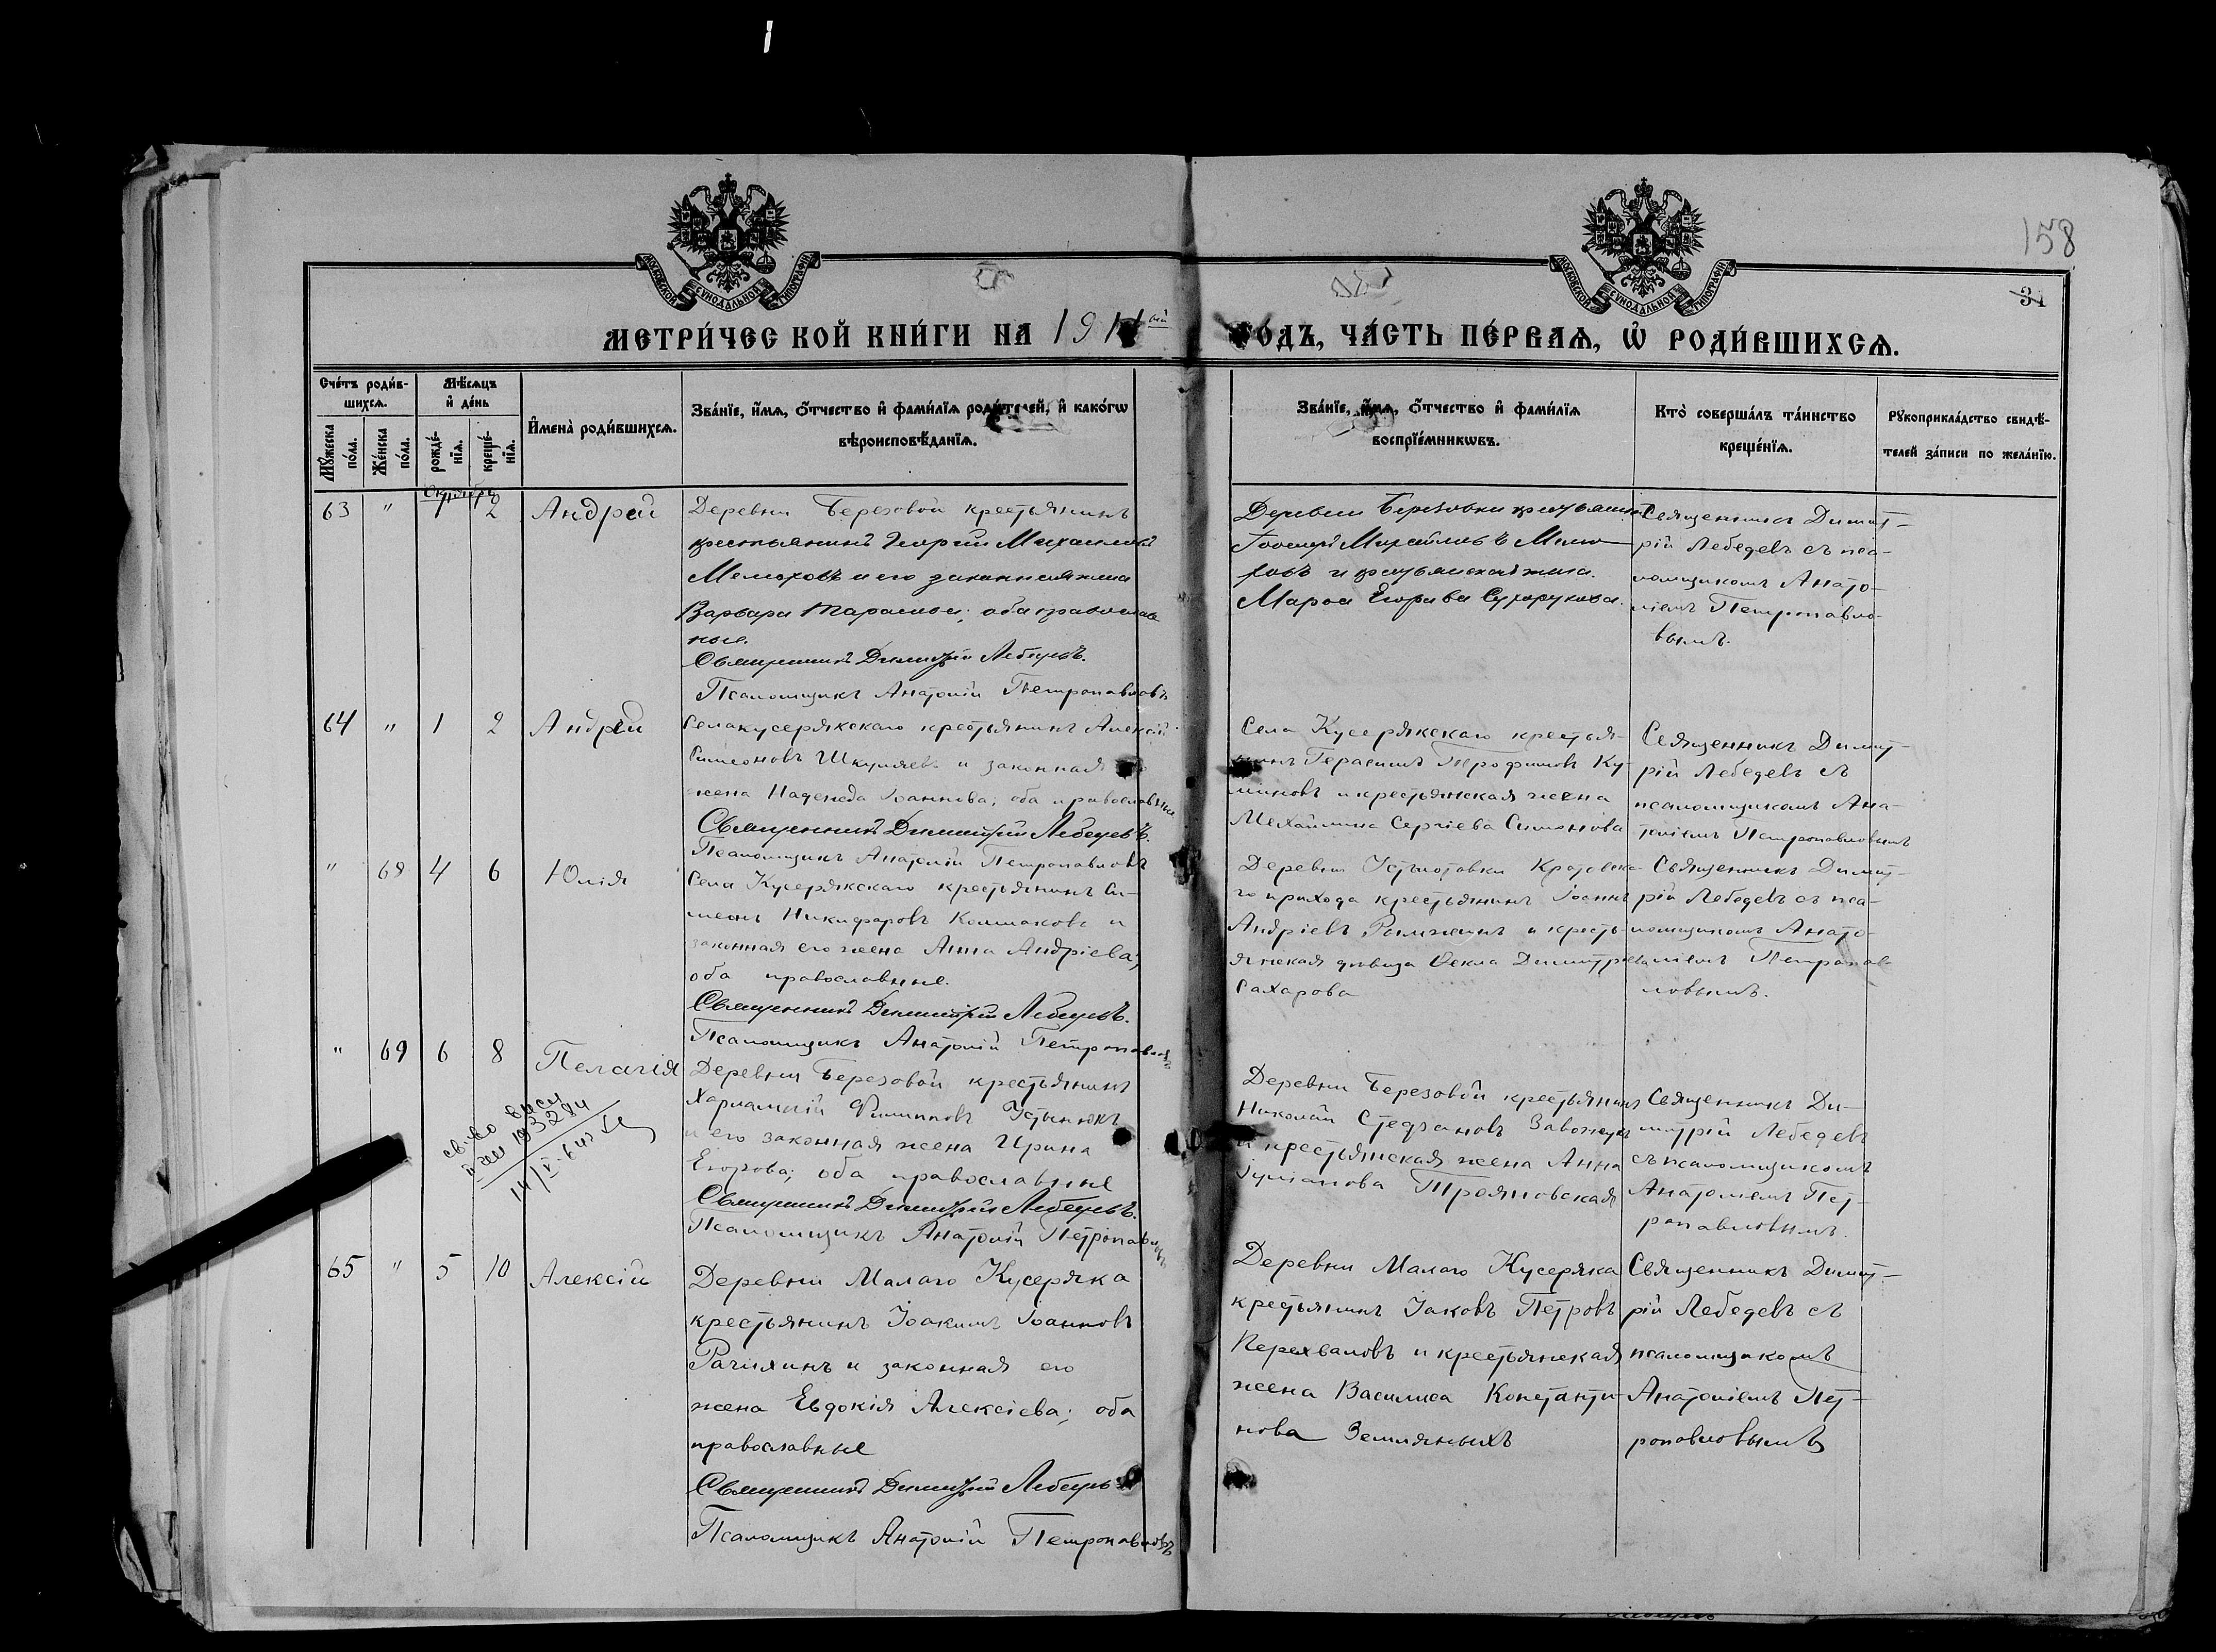 158
31
МОСКОВСКОЙ СѴНОДАЛЬНОЙ ТИПОГРАФІИ
МОСКОВСКОЙ СѴНОДАЛЬНОЙ ТИПОГРАФІИ
МЕТРИ́ЧЕС КОЙ КНИ́ГИ НА 1911ый ГО́ДЪ, ЧА́СТЬ ПЕ́РВАѦ, Ѡ҆ РОДИ́ВШИХСѦ.
Сче́тъ роди́в-
шихсѧ.
Мꙋ́жеска по́ла.
Же́нска по́ла.
Мѣ́сѧцъ
и҆ де́нь
рожде́-нїѧ.
креще́-нїѧ.
И҆мена̀ роди́вшихсѧ.
Зва́нїе, и҆́мѧ, ѻ҆́тчество и҆ фами́лїѧ роди́телей, и҆ како́гѡ
вѣроисповѣ́данїѧ.
Зва́нїе, и҆́мѧ, ѻ҆́тчество и҆ фами́лїѧ
воспрїе́мникѡвъ.
Кто̀ соверша́лъ та́инство
креще́нїѧ.
Рꙋкоприкла́дство свидѣ́-
телей за́писи по жела́нїю.
Октябрь
63 " 1 2 Андрей
Деревни Березовой крестьянинъ
крестьянинъ Георгій Михаиловъ
Мелоховъ и его законная жена
Варвара Тарасова; оба православ
ные.
Священникъ Димитрій Лебедевъ.
Псаломщикъ Анатолій Петропавловъ
Деревни Березовки крестьянинъ
Михайловъ
и крестьянская жена
Марѳа Егорова Сухорукова.
Священникъ Димит-
рій Лебедевъ съ пса-
ломщикомъ Анато-
ліемъ Петропавло-
вымъ.
64 " 1 2 Андрей
Села Кусерякскаго крестьянинъ Алексій
Симеоновъ Шкуляевъ и законная его
жена Надежда Іоаннова; оба православные
Священникъ Димитрій Лебедевъ.
Псаломщикъ Анатолій Петропавловъ
Села Кусерякскаго крестья-
нинъ Герасимъ Трофимовъ Ку-
миновъ и крестьянская жена
Сергіева Симонова
Священникъ Димит-
рій Лебедевъ съ
псаломщикомъ Ана-
толіемъ Петропавловымъ
" 68 4 6 Юлія
Села Кусерякскаго крестьянинъ Си-
меонъ Никифоровъ Колмаковъ и
законная его жена Анна Андріева;
оба православные.
Священникъ Димитрій Лебедевъ.
Псаломщикъ Анатолій Петропавловъ
Деревни Кротовска-
го прихода крестьянинъ Іоаннъ
Андріевъ и кресть-
янская дѣвица Ѳекла Димитріева
Сахарова
Священникъ Димит-
рій Лебедевъ съ пса-
ломщикомъ Анато-
ліемъ Петропав-
ловымъ.
" 69 6 8 Пелагія
Деревни Березовой крестьянинъ
Харлампій Филипповъ Устьянокъ
и его законная жена Ирина
Егорова; оба православные
Священникъ Димитрій Лебедевъ.
Псаломщикъ Анатолій Петропавловъ
Деревни Березовой крестьянинъ
Николай Стефановъ
и крестьянская жена Анна
Трояновская
Священникъ Ди-
митрій Лебедевъ
съ псаломщикомъ
Анатоліемъ Пет-
ропавловымъ.
65 " 5 10 Алексій
Деревни Малаго Кусеряка
крестьянинъ Іоакимъ Іоанновъ
Рагихинъ и законная его
жена Евдокія Алексіева; оба
православные
Священникъ Димитрій Лебедевъ
Псаломщикъ Анатолій Петропавловъ
Деревни Малаго Кусеряка
крестьянинъ Іаковъ Петровъ
Перехваловъ и крестьянская
жена Василиса Константи-
нова Земляныхъ
Священникъ Димит-
рій Лебедевъ съ
псаломщикомъ
Анатоліемъ Пет-
ропавловымъ